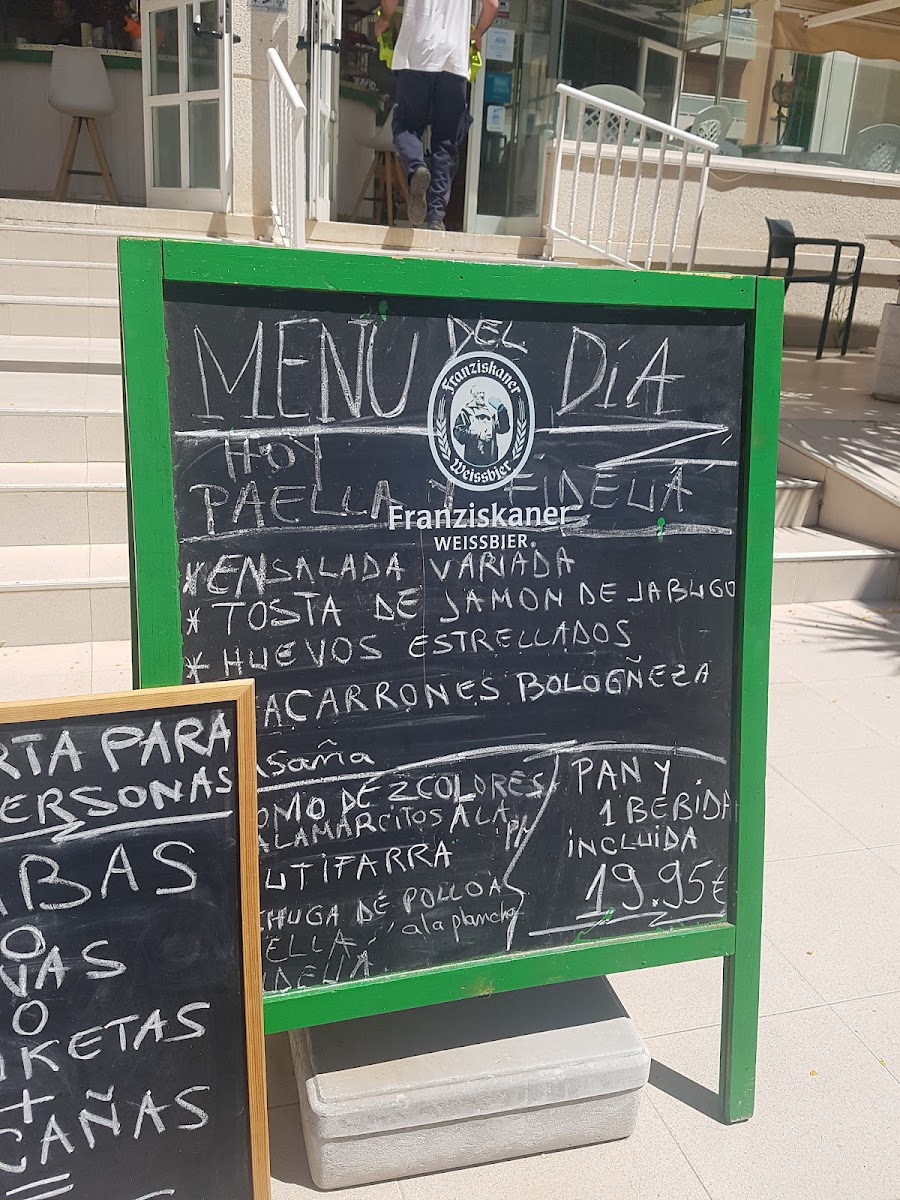 MENU DEL DíA
HOY
PAELLA Y FIDEUÁ
Franziskaner
Weissbier
Franziskaner
WEISSBIER
* ENSALADA VARIADA
* TOSTA DE JAMON DE JABUGO
* HUEVOS ESTRELLADOS
ACARRONES BOLOGÑEZA
asaña
OMO DE 2 COLORES
ALAMARCITOS A LA
UTIFARRA
CHUGA DE POLLO A
a la plancha
ELLA
IDEUÁ
PAN Y
1 BEBIDA
iNCLUIDA
19.95€
RTA PARA
PERSONAS
ABAS
O
VAS
O
IKETAS
+
CAÑAS
=